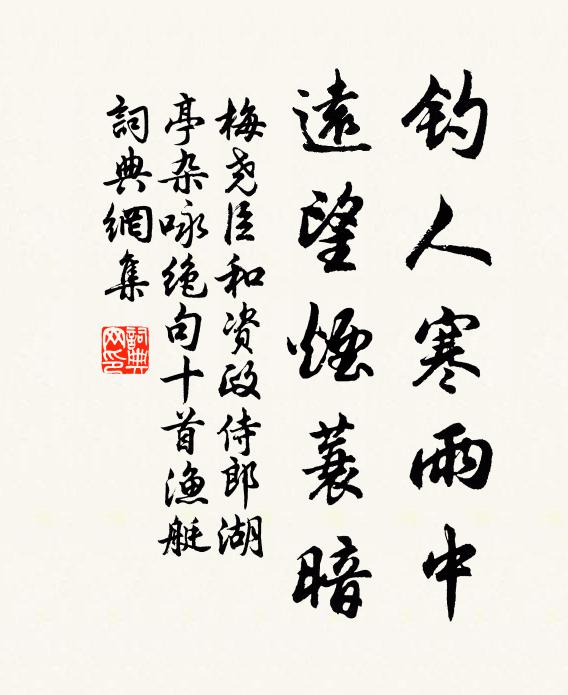 釣人寒雨中
遠望煙蓑暗
梅尧臣和资政侍郎湖
亭杂咏绝句十首渔艇
詞典網集
詞典網印